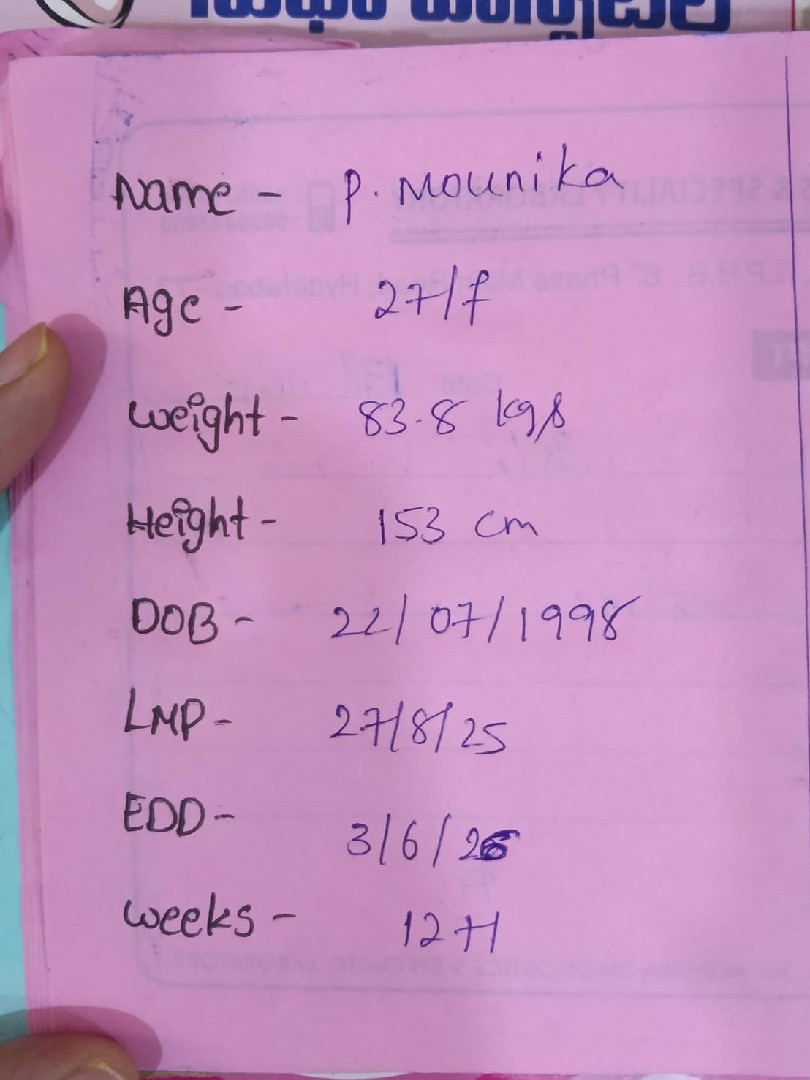 Name - P. Mounika
Age - 27/F
Weight - 83.8 kgs
Height - 153 cm
DOB - 22/07/1998
LMP - 27/8/25
EDD - 3/6/26
weeks - 12+1